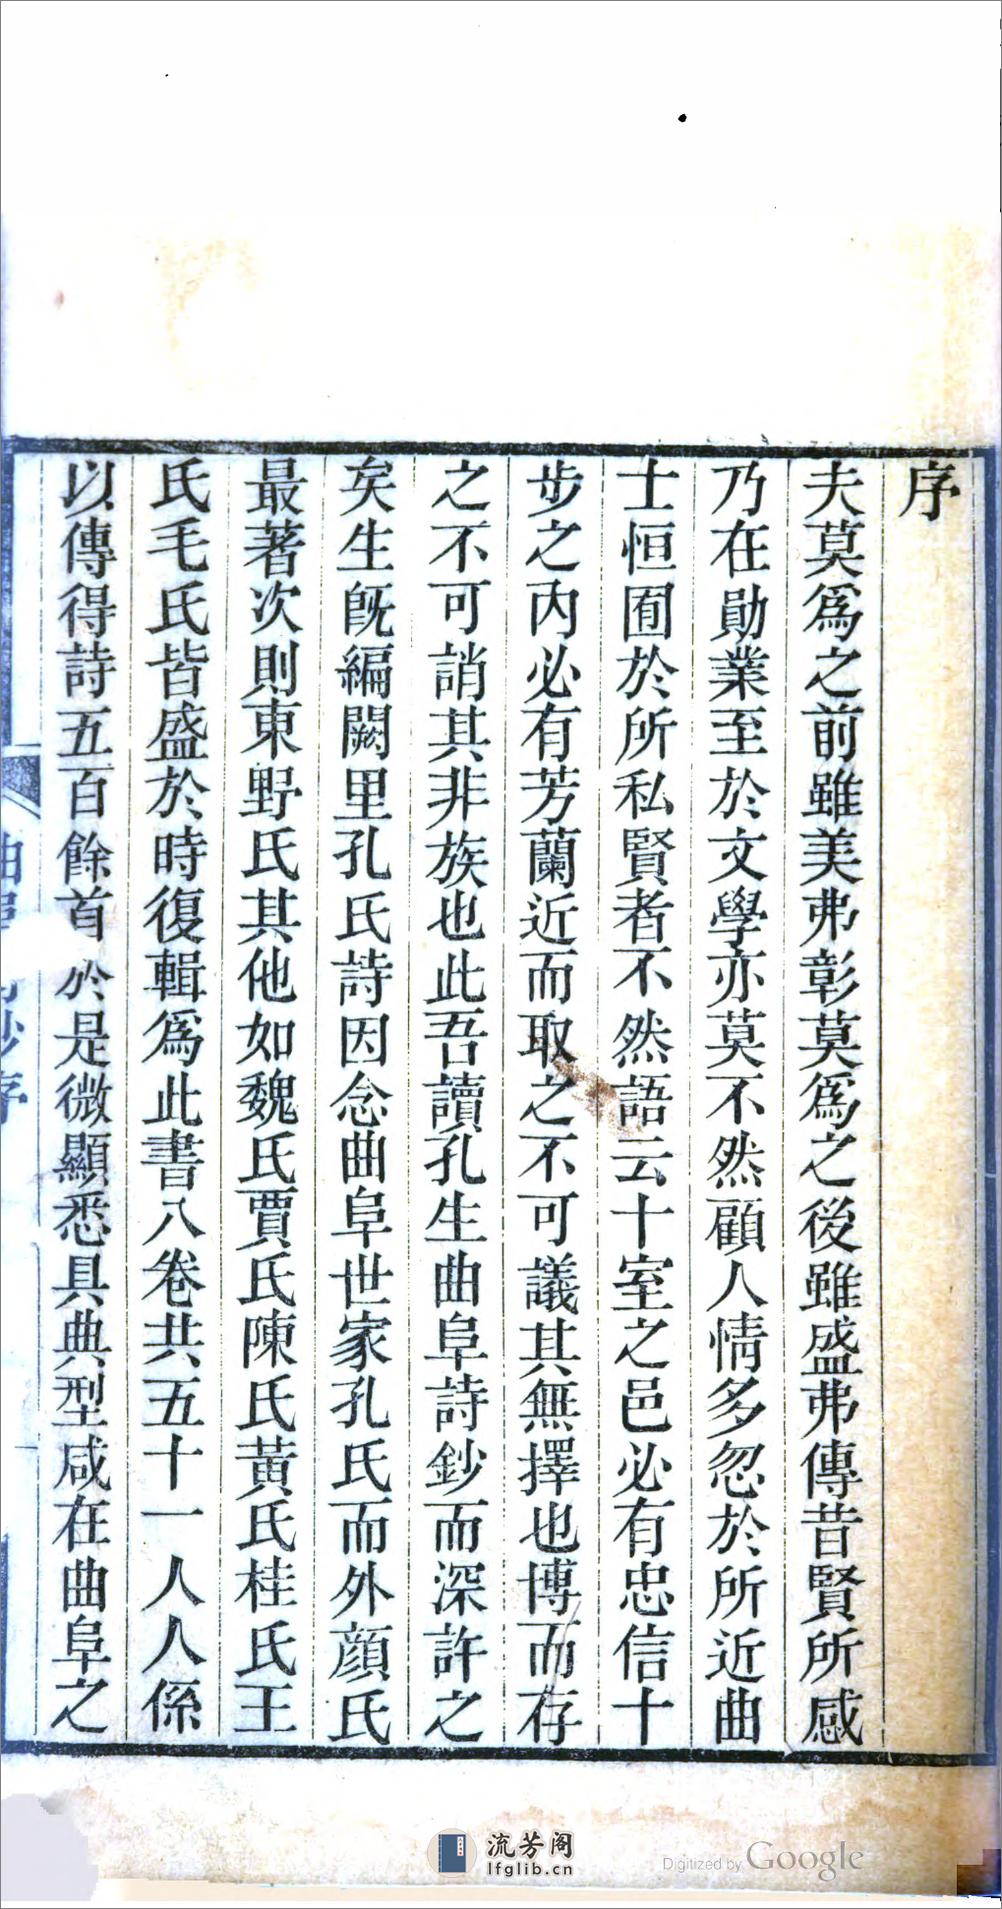 序
夫莫爲之前雖美弗彰莫爲之後雖盛弗傳昔賢所感
乃在勛業至於文學亦莫不然顧人情多忽於所近曲
士恒囿於所私賢者不然語云十室之邑必有忠信十
步之內必有芳蘭近而取之不可議其無擇也博而存
之不可誚其非族也此吾讀孔生曲阜詩鈔而深許之
矣生旣編闕里孔氏詩因念曲阜世家孔氏而外顔氏
最著次則東野氏其他如魏氏賈氏陳氏黃氏桂氏王
氏毛氏皆盛於時復輯爲此書八卷共五十一人人係
以傳得詩五百餘首於是微顯悉具典型咸在曲阜之
鈔序
流芳阁
lfglib.cn
Digitized by Google